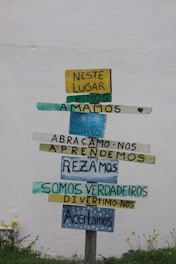 NESTE
LUGAR
AMAMOS
ABRAÇAMO-NOS
APRENDEMOS
REZÁMOS
SOMOS VERDADEIROS
DIVERTIMO-NOS
Aceitamos